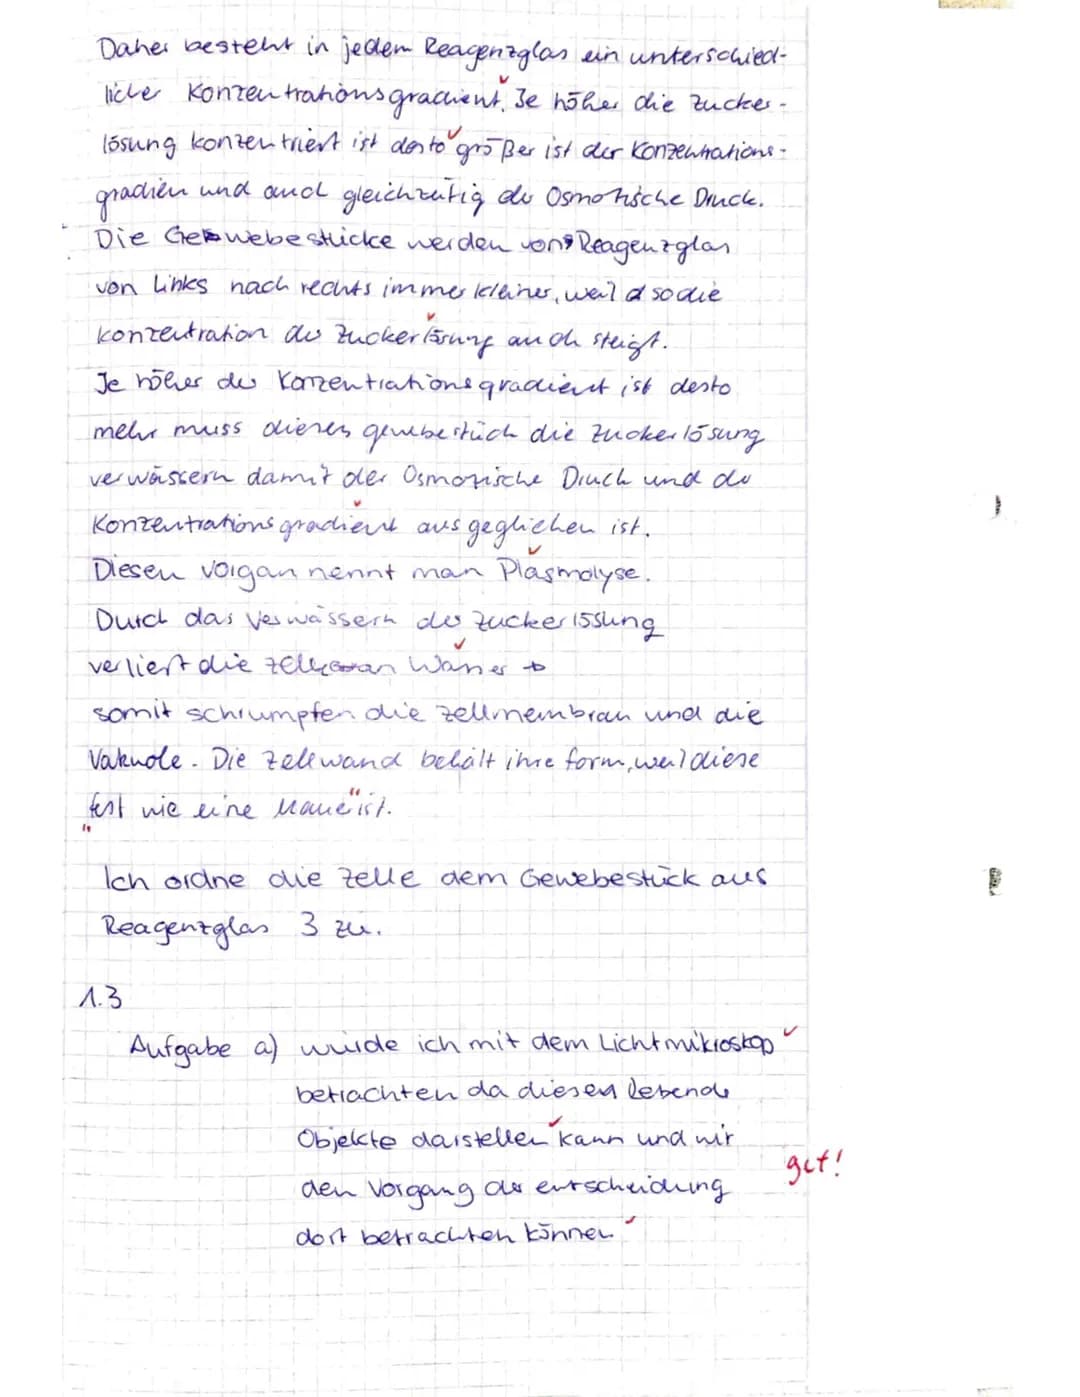 Daher besteht in jedem Reagenzglas ein unterschied-
licher Konzentrationsgradient. Je höher die Zucker-
lösung konzentriert ist desto größer ist der Konzentrations-
gradien und auch gleichzeitig der Osmotische Druck.
Die Gewebestücke werden von Reagenzglas
von Links nach rechts immer kleiner, weil so die
konzentration der Zuckerlösung auch steigt.
Je höher der Konzentrationsgradient ist desto
mehr muss dieses gewebestück die Zuckerlösung
verwässern damit der Osmotische Druck und der
Konzentrationsgradient ausgeglichen ist.
Diesen vorgan nennt man Plasmolyse.
Durch das Verwässern der Zuckerlösung
verliert die Zelle an Wasser
somit schrumpfen die Zellmembran und die
Vakuole. Die Zellwand behält ihre form, weil diese
"fest wie eine Mauer" ist.
Ich ordne die Zelle dem Gewebestück aus
Reagenzglas 3 zu.
1.3
Aufgabe a) würde ich mit dem Lichtmikroskop
betrachten da dieses lebende
Objekte darstellen kann und wir
den Vorgang der entscheidung
dort betrachten können
gut!